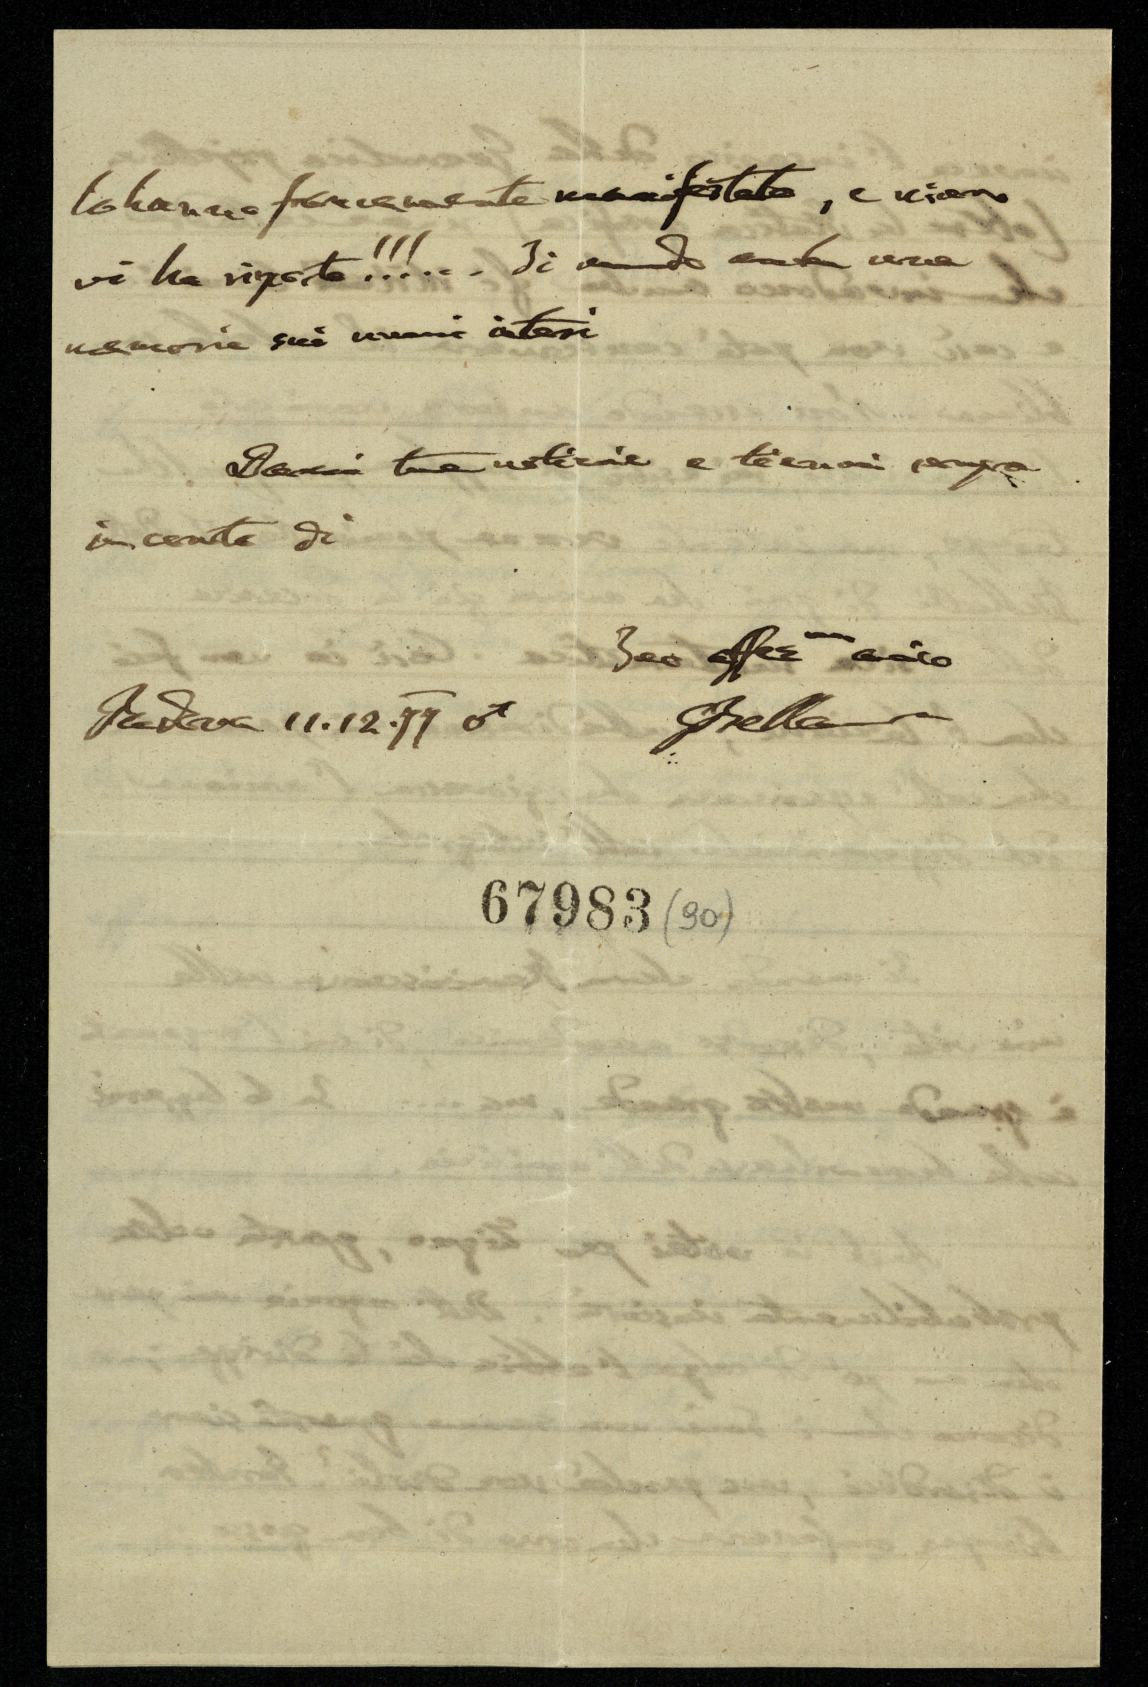 lo hanno francamente manifestato, e niuno
vi ha risposto!!!.... Ti mando anche una
memoria sui numeri interi
Dammi tue notizie e tienmi sempre
in conto di
Tuo affez.mo amico
Padova 11.12.77 ♂
67983 (90)